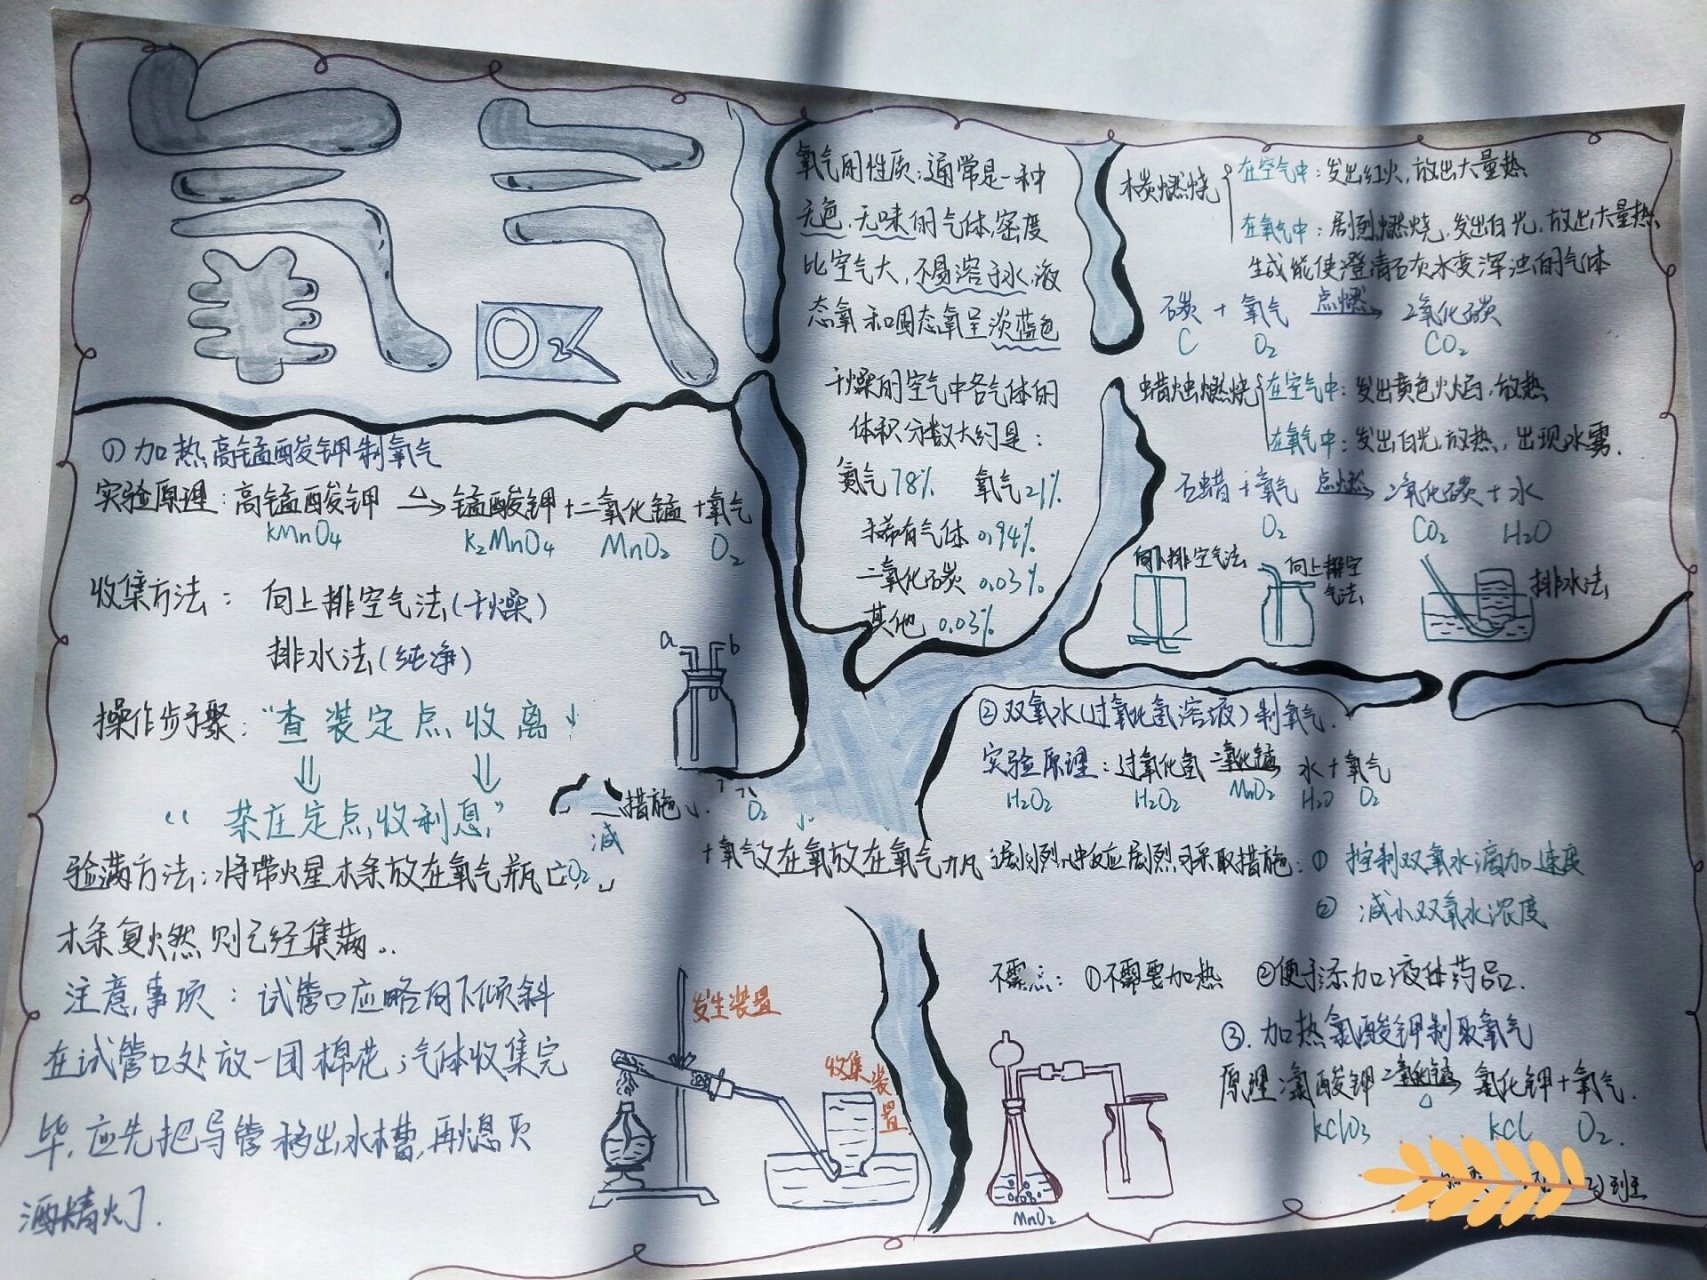 氧气
O₂
氧气的性质：通常是一种
无色、无味的气体，密度
比空气大，不易溶于水，液
态氧和固态氧呈淡蓝色
干燥的空气中各气体的
体积分数大约是：
氮气78% 氧气21%
稀有气体0.94%
二氧化碳 0.03%
其他 0.03%
木炭燃烧
在空气中：发出红火，放出大量热
在氧气中：剧烈燃烧，发出白光，放出大量热
生成能使澄清石灰水变浑浊的气体
碳 + 氧气 点燃→ 2氧化碳
C O₂ CO₂
蜡烛燃烧
在空气中：发出黄色火焰，放热
在氧气中：发出白光，放热，出现水雾.
石蜡+氧气 点燃→ 2氧化碳+水
O₂ CO₂ H₂O
向下排空气法
向上排空
气法
排水法
① 加热高锰酸钾制氧气
实验原理：高锰酸钾 △→ 锰酸钾+二氧化锰+氧气
KMnO₄ K₂MnO₄ MnO₂ O₂
收集方法： 向上排空气法(干燥)
排水法(纯净)
a b
操作步骤：“查装定点收离
“茶庄定点,收利息”
措施
O₂
减
验满方法：将带火星木条放在氧气瓶
木条复燃则已经集满..
注意事项：试管口应略向下倾斜
在试管口处放一团棉花；气体收集完
毕，应先把导管移出水槽，再熄灭
酒精灯.
发生装置
收集装置
② 双氧水(过氧化氢溶液)制氧气.
实验原理：过氧化氢 二氧化锰 水+氧气
H₂O₂ H₂O₂ MnO₂ H₂O O₂
反应剧烈可采取措施：① 控制双氧水滴加速度
② 减小双氧水浓度
①不需要加热 ②便于添加液体药品.
MnO₂
③. 加热氯酸钾制取氧气
原理：氯酸钾 2氧化锰→△ 氯化钾+氧气.
KClO₃ KCl O₂.